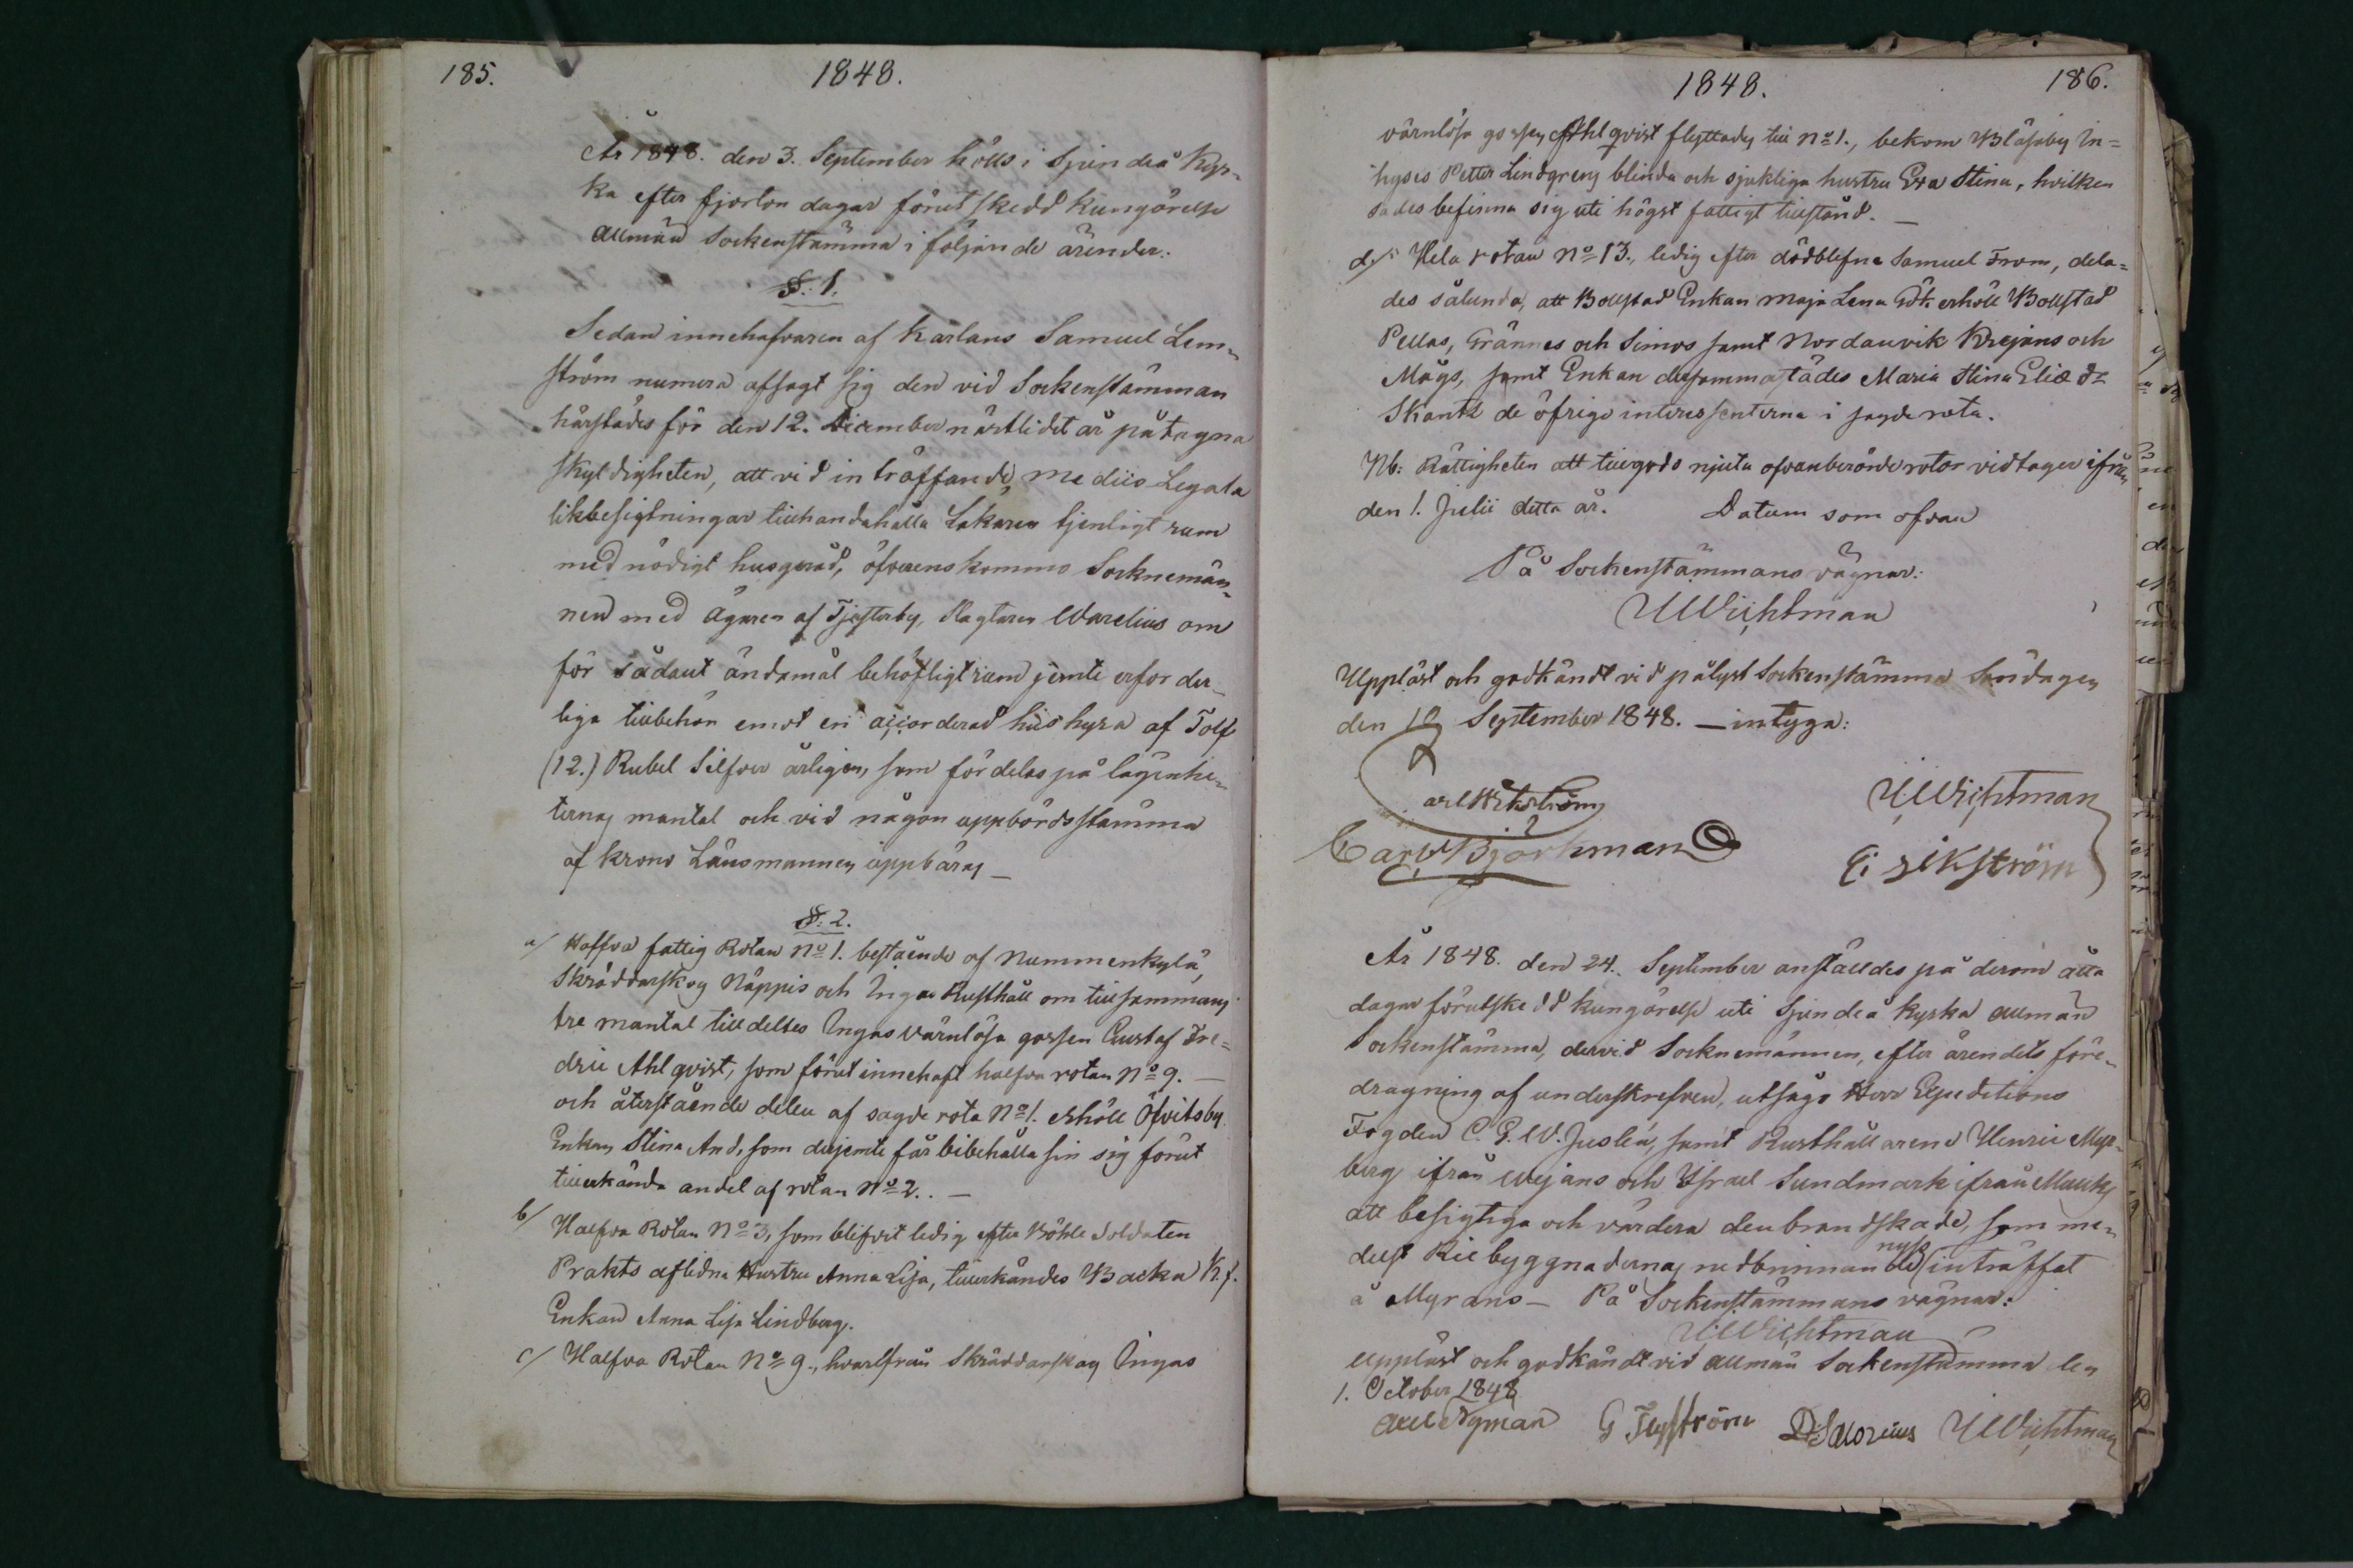 185.
1848.
År 1848. den 3. September hölls i Sjundeå Kyr-
ka efter fjorton dagar förut skedd kungörelse
allmän Sockenstämma i följande ärender.
§. 1.
Sedan innehafvaren af Karlans Samuel Lem-
ström numera afsagt sig den vid Sockenstämman
härstädes för den 12. December nästlidet år påtagna
skyldigheten, att vid inträffande medico Legala
likbesigtningar tillhandahålla Läkaren tjenligt rum
med nödigt husgeråd, öfverenskommo Socknemän-
nen med ägaren af Tjusterby, Ragtaren Warelius om
för sådant ändamål behöfligt rum jemte erforder-
liga tillbehör emot en accorderad hushyra af Tolf
(12.) Rubel Silfver årligen, som fördelas på lägenhe-
ternas mantal och vid någon uppbördsstämma
af krono Länsmannen uppbäras —
§. 2.
a/ Halfva fattig Rotan No 1. bestående af Nummenkylä,
Skräddarskog Näppis och Ingas Rusthåll om tillsammans
tre mantal tilldeltes Ingas värnlösa gossen Gustaf Fre=
dric Ahlqvist, som förut innehaft halfva rotan No 9. —
och återstående delen af sagde rota No 1. erhöll Öfvitsby
Enkan Stina And, som dessjemte får bibehålla sin sig förut
tillerkända andel af rotan No 2. —
b/ Halfva Rotan No 3, som blifvit ledig efter Böhle Soldaten
Prakts aflidna Hustru Anna Lisa, tillerkändes Backa K.f.
Enkan Anna Lisa Lindberg.
c/ Halfva Rotan No 9., hvarifrån Skräddarskog Ingas
1848.
186.
värnlösa gossen Ahlqvist flyttades till No 1., bekom Bläsaby In=
hyses Petter Lindgrens blinda och sjukliga hustru Eva Stina, hvilken
sades befinna sig uti högst fattigt tillstånd. —
d./ Hela rotan No 13., ledig efter dödblefne Samuel From, dela=
des sålunda, att Bollstad Enkan Maja Lena Gök erhöll Bollstad
Pellas, Grännes och Simos samt Nordanvik Krejans och
Mågs, samt Enkan dersammastädes Maria Stina Eliæ dr
Skantz de öfriga interessenterna i sagde rota.
Nb: Rättigheten att tillgodo njuta ofvanberörde rotor vidtager ifrån
den 1. Julii detta år. Datum som ofvan
På Sockenstämmans vägnar:
UWichtman
Uppläst och godkändt vid pålyst Sockenstämma Söndagen
den 10 September 1848. — intyga:
Carl Wikström
UWichtman
Carl Björkman
E: Wikström
År 1848. den 24. September anställdes på derom åtta
dagar förutskedd kungörelse uti Sjundeå kyrka allmän
Sockenstämma, dervid Socknemännen, efter ärendets före-
dragning af underskrefven, utsågo Herr Expeditions
Fogden C. G. W. Juslén, samt Rusthållarene Henric Myr-
berg ifrån Wejans och Israel Sundmark ifrån Munks
att besigtiga och värdera den brandskada, som me-
delst Riebyggnadernas nedbrinnande nyss inträffat
å Myrans — På Sockenstämmans vägnar:
UWichtman
Uppläst och godkändt vid allmän Sockenstämma den
1. October 1848
Axel Nyman G Flyström UWichtman